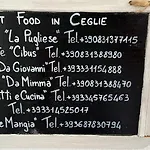 T FOOD IN CEGLIE
"La Pugliese" Tel. +390831377115
e "Cibus" Tel. +390831388980
Da Giovanni" Tel. +393331154888
"Da Mimma" Tel. +390831388470
tti e Cucina" Tel. +393345765463
Tel. +393314525017
e Mangia" Tel. +393687830794